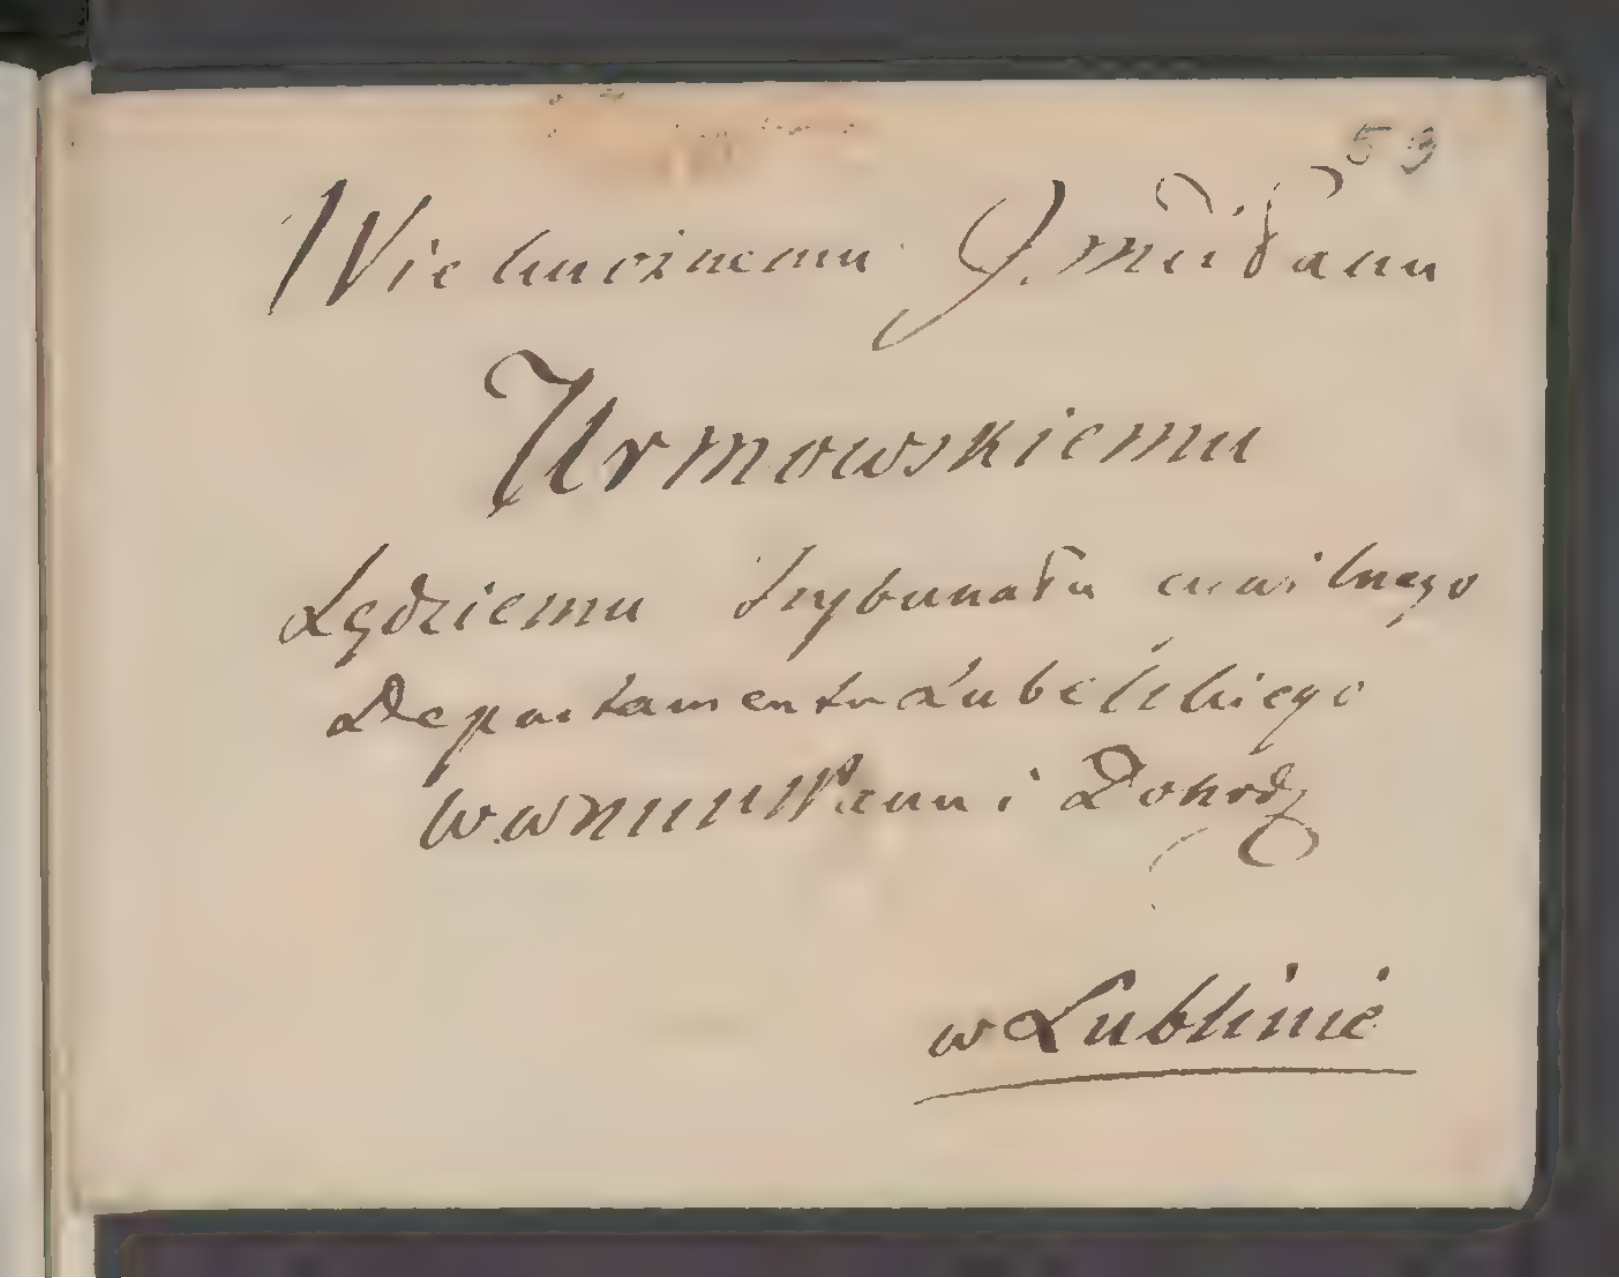 53
Wielmożnemu J. mći Panu
Urmowskiemu
Sędziemu Trybunału cywilnego
Departamentu Lubelskiego
W. wmu Panu i Dobrodz
w Lublinie